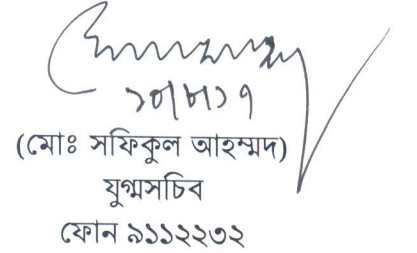 ১০/৮/১৭
(মোঃ সফিকুল আহম্মদ)
যুগ্মসচিব
ফোন ৯১১২২৩২